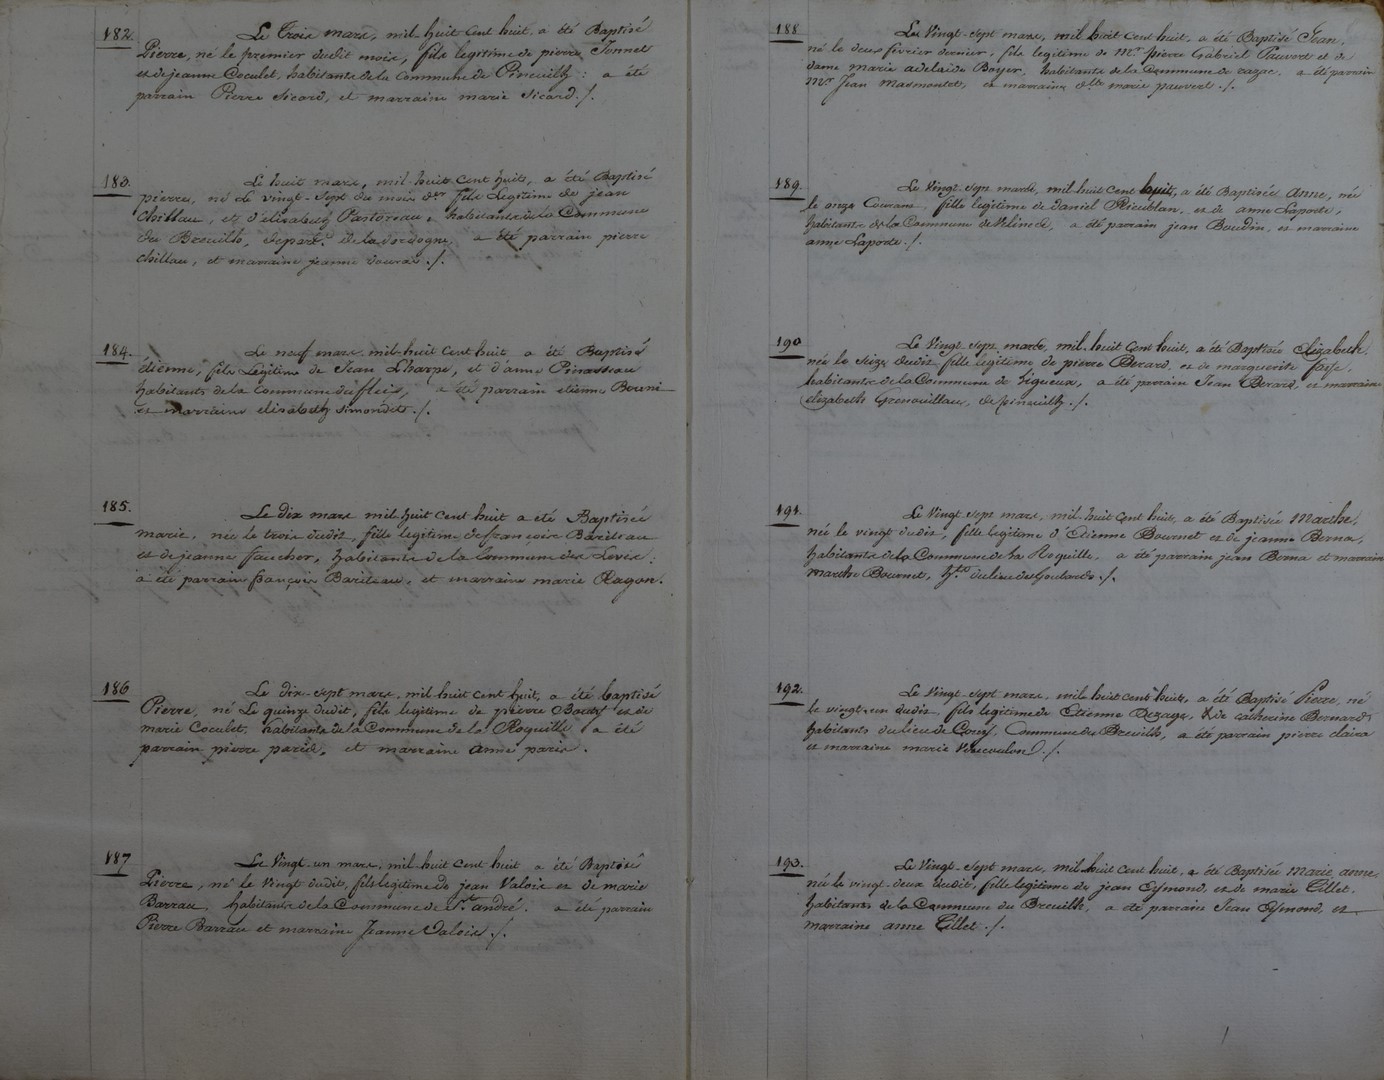 182. Le Trois mars, mil huit Cent huit, a été Baptisé
Pierre, né le premier dudit mois, fils legitime de pierre Tonnet
et de jeanne Coculet, habitants de la Commune de Pineuilh : a été
parrain Pierre Sicard, et marraine marie Sicard ./.
183. Le huit mars, mil-huit Cent huit, a été Baptisé
pierre, né Le vingt-Sept du mois der fils Legitime de jean
Chillau, et d'elisabeth Pastoreau, habitants de la Commune
du Breuilh, départ. De la dordogne, a été parrain pierre
Chillau, et marraine jeanne ./.
184. Le neuf mars mil-huit Cent huit a été Baptisé
étienne, fils Légitime de Jean Lharpe, et d'anne Pinasseau
habitants de la Commune de fleix, a été parrain etienne
et marraine elisabeth Simondet ./.
185. Le dix mars mil huit Cent huit a été Baptisée
marie, née le trois dudit, fille legitime de françois Bariteau
et de jeanne faucher, habitants de la Commune des Leves :
a été parrain françois Bariteau, et marraine marie Ragon.
186 Le dix-sept mars, mil huit cent huit, a été baptisé
Pierre, né Le quinze dudit, fils legitime de pierre et de
marie Coculet, habitants de la Commune de la Roquille a été
parrain pierre paris, et marraine anne paris.
187 Le Vingt-un mars, mil huit Cent huit a été Baptisé
Pierre, né le Vingt dudit, fils legitime de jean Valois et de marie
Barrau, habitants de la Commune de St andré. a été parrain
Pierre Barrau et marraine Jeanne Valois ./.
188 Le Vingt-Sept mars, mil huit cent huit, a été Baptisé Jean,
né le deux février dernier, fils legitime de Mr pierre Gabriel Pauvert et de
dame marie adelaide Boyer, habitants de la Commune de razac, a été parrain
Mr Jean Masmontet, et marraine dlle marie pauvert ./.
189. Le Vingt-Sept mars, mil huit Cent huit, a été Baptisée anne, née
le onze Courant fille legitime de daniel Rieublan, et de anne Laporte,
habitants de la Commune de Velines, a été parrain jean Boudin, et marraine
anne Laporte ./.
190 Le Vingt Sept mars, mil huit Cent huit, a été Baptisée Elizabeth,
née le Seize dudit fille legitime de pierre Berard, et de marguerite
habitants de la Commune de Ligueux, a été parrain Jean Berard, et marraine
elizabeth Grenouilleau, de pineuilh ./.
191. Le Vingt Sept mars, mil huit Cent huit, a été Baptisée Marthe,
née le vingt dudit, fille legitime d'Etienne Bournet et de jeanne Berna,
habitants de la Commune de la Roquille, a été parrain jean Berna et marraine
marthe Bournet, hte du lieu des Goulards ./.
192. Le Vingt-Sept mars, mil huit Cent huit, a été Baptisé Pierre, né
le vingt-un dudit, fils legitime de Etienne Dizage, & de catherine Bernard,
habitants du lieu de Commune du Breuilh, a été parrain pierre claira
et marraine marie Vaucoulon ./.
193. Le Vingt-Sept mars, mil huit Cent huit, a été Baptisé Marie anne,
née le vingt-deux dudit, fille legitime de jean Eymond, et de marie Tillet,
habitants de la Commune du Breuilh, a été parrain Jean Eymond, et
marraine anne Tillet ./.